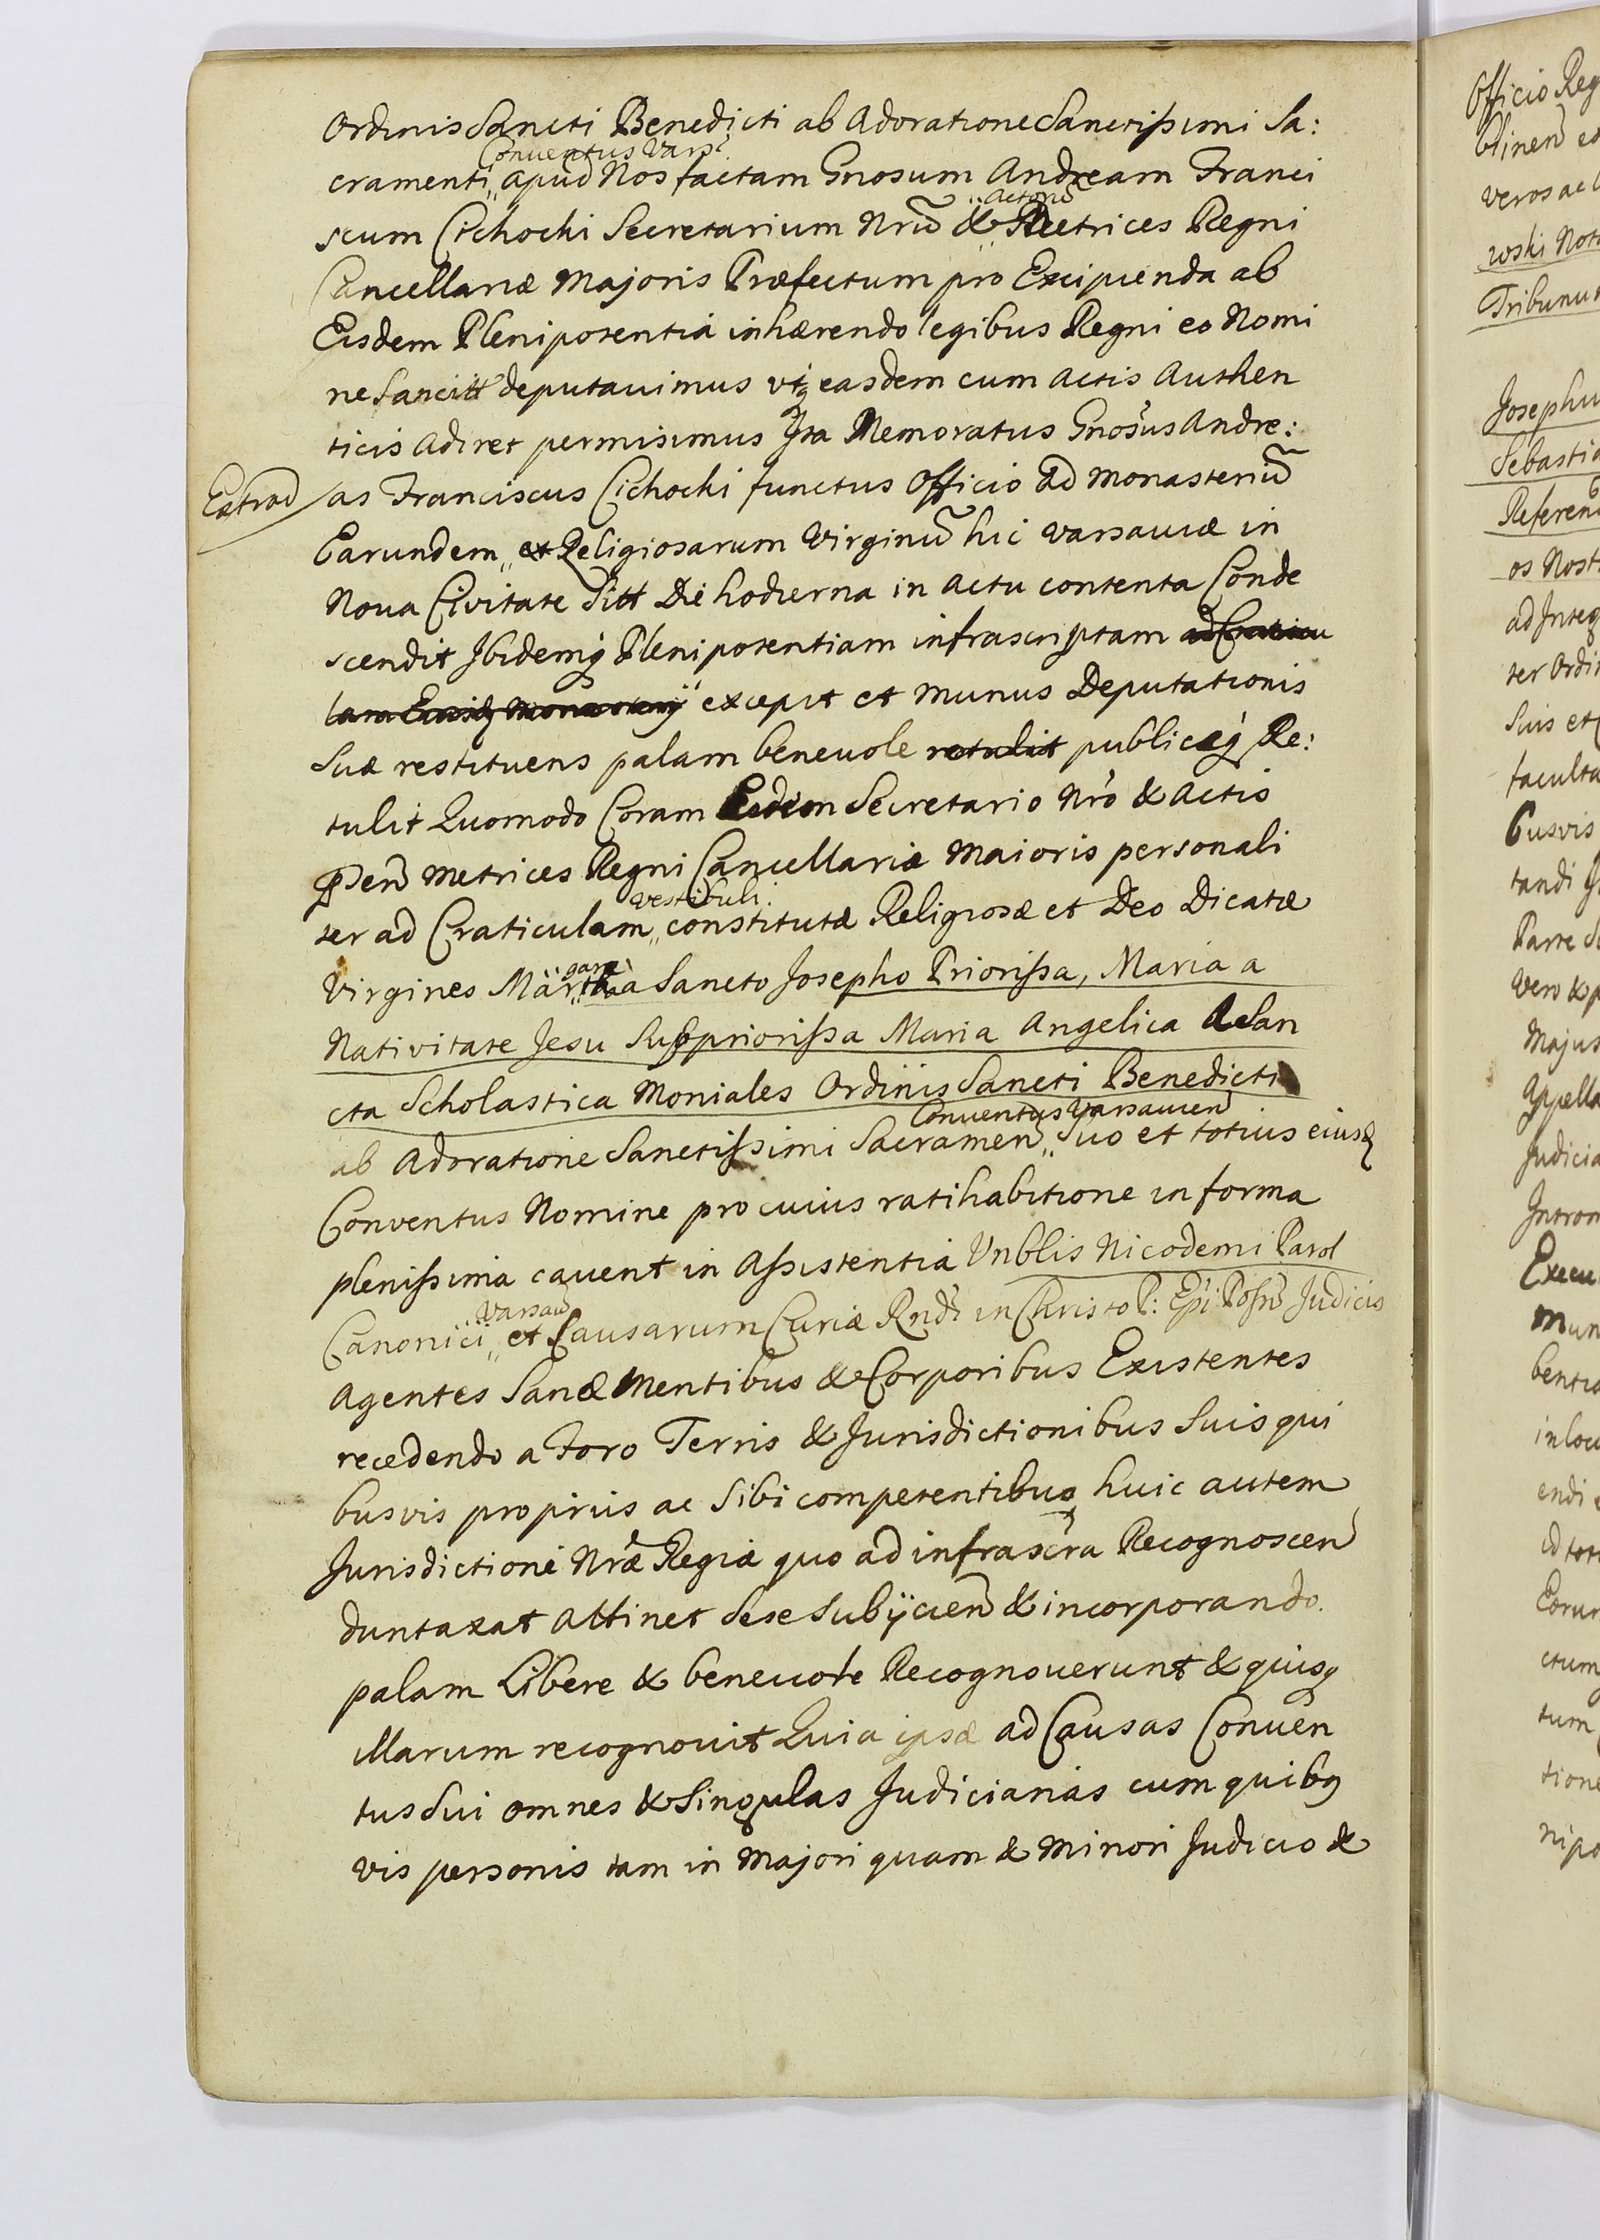 Ordinis Sancti Benedicti ab Adoratione Sanctißimi Sa:
Conventus Vars:
cramenti,, apud Nos factam Gnosum Andream Franci
Actorū
scum Cichocki Secretarium Nrū & Metrices Regni
Cancellariæ Majoris Præfectum pro Excipienda ab
Eisdem Plenipotentia inhærendo legibus Regni eo Nomi
ne Sancitt deputavimus utq easdem cum Actis Authen
ticis adiret permisimus Ita Memoratus Gnosus Andre:
Extrad
as Franciscus Cichocki functus Officio ad Monasteriū
Earundem,, et Religiosarum Virginū hic Varsaviæ in
Nova Civitate Sitt Die hodierna in actu contenta Conde
scendit Ibidemq Plenipotentiam infrascriptam ad Craticu
lam Eiusdē Monasterij excepit et munus Deputationis
Suæ restituens palam benevole retulit publiceq Re:
tulit Quomodo Coram Eodem Secretario Nrō & Actis
Pen̄ Metrices Regni Cancellariæ Maioris personali
vestibuli
ter ad Craticulam,, constitutæ Religiosæ et Deo Dicatæ
gare
Virgines Martha a Sancto Josepho Priorißa, Maria a
Nativitate Jesu Suppriorißa Maria Angelica a San
cta Scholastica Moniales Ordinis Sancti Benedicti
Conventus Varsavien
ab Adoratione Sanctißimi Sacramen,, Suo et totius eiusdē
Conventus Nomine pro cuius ratihabitione in forma
plenißima cavent in Aßistentia Vnblis Nicodemi Parol
Varsav
Canonici,, et Causarum Curiæ Rndi in Christo P: Epi Posn Judicis
Agentes Sanæ Mentibus & Corporibus Existentes
recedendo a Foro Terris & Jurisdictionibus Suis qui
busvis proprijs ac Sibi competentibus huic autem
Jurisdictioni Nræ Regiæ quo ad infrascra Recognoscen
duntaxat Attinet Sese Subijcien & incorporando.
palam Libere & benevole Recognoverunt & quisq
illarum recognovit Quia ipsæ ad Causas Conven
tus Sui omnes & Singulas Judiciarias cum quibq
vis personis tam in Majori quam & Minori Judicio &
Officio Reg
veros ac
wski Not
Tribunu
Josephu
Sebastia
Referen
os Nost
ad Integ
ter Ordi
Suis et
faculta
Cusvis
tandi
Parte
Vero &
Majus
Appella
Judicia
Introm
Execu
mun
bentia
in loc
endi
Eorun
ctum
tum
tione
nipo